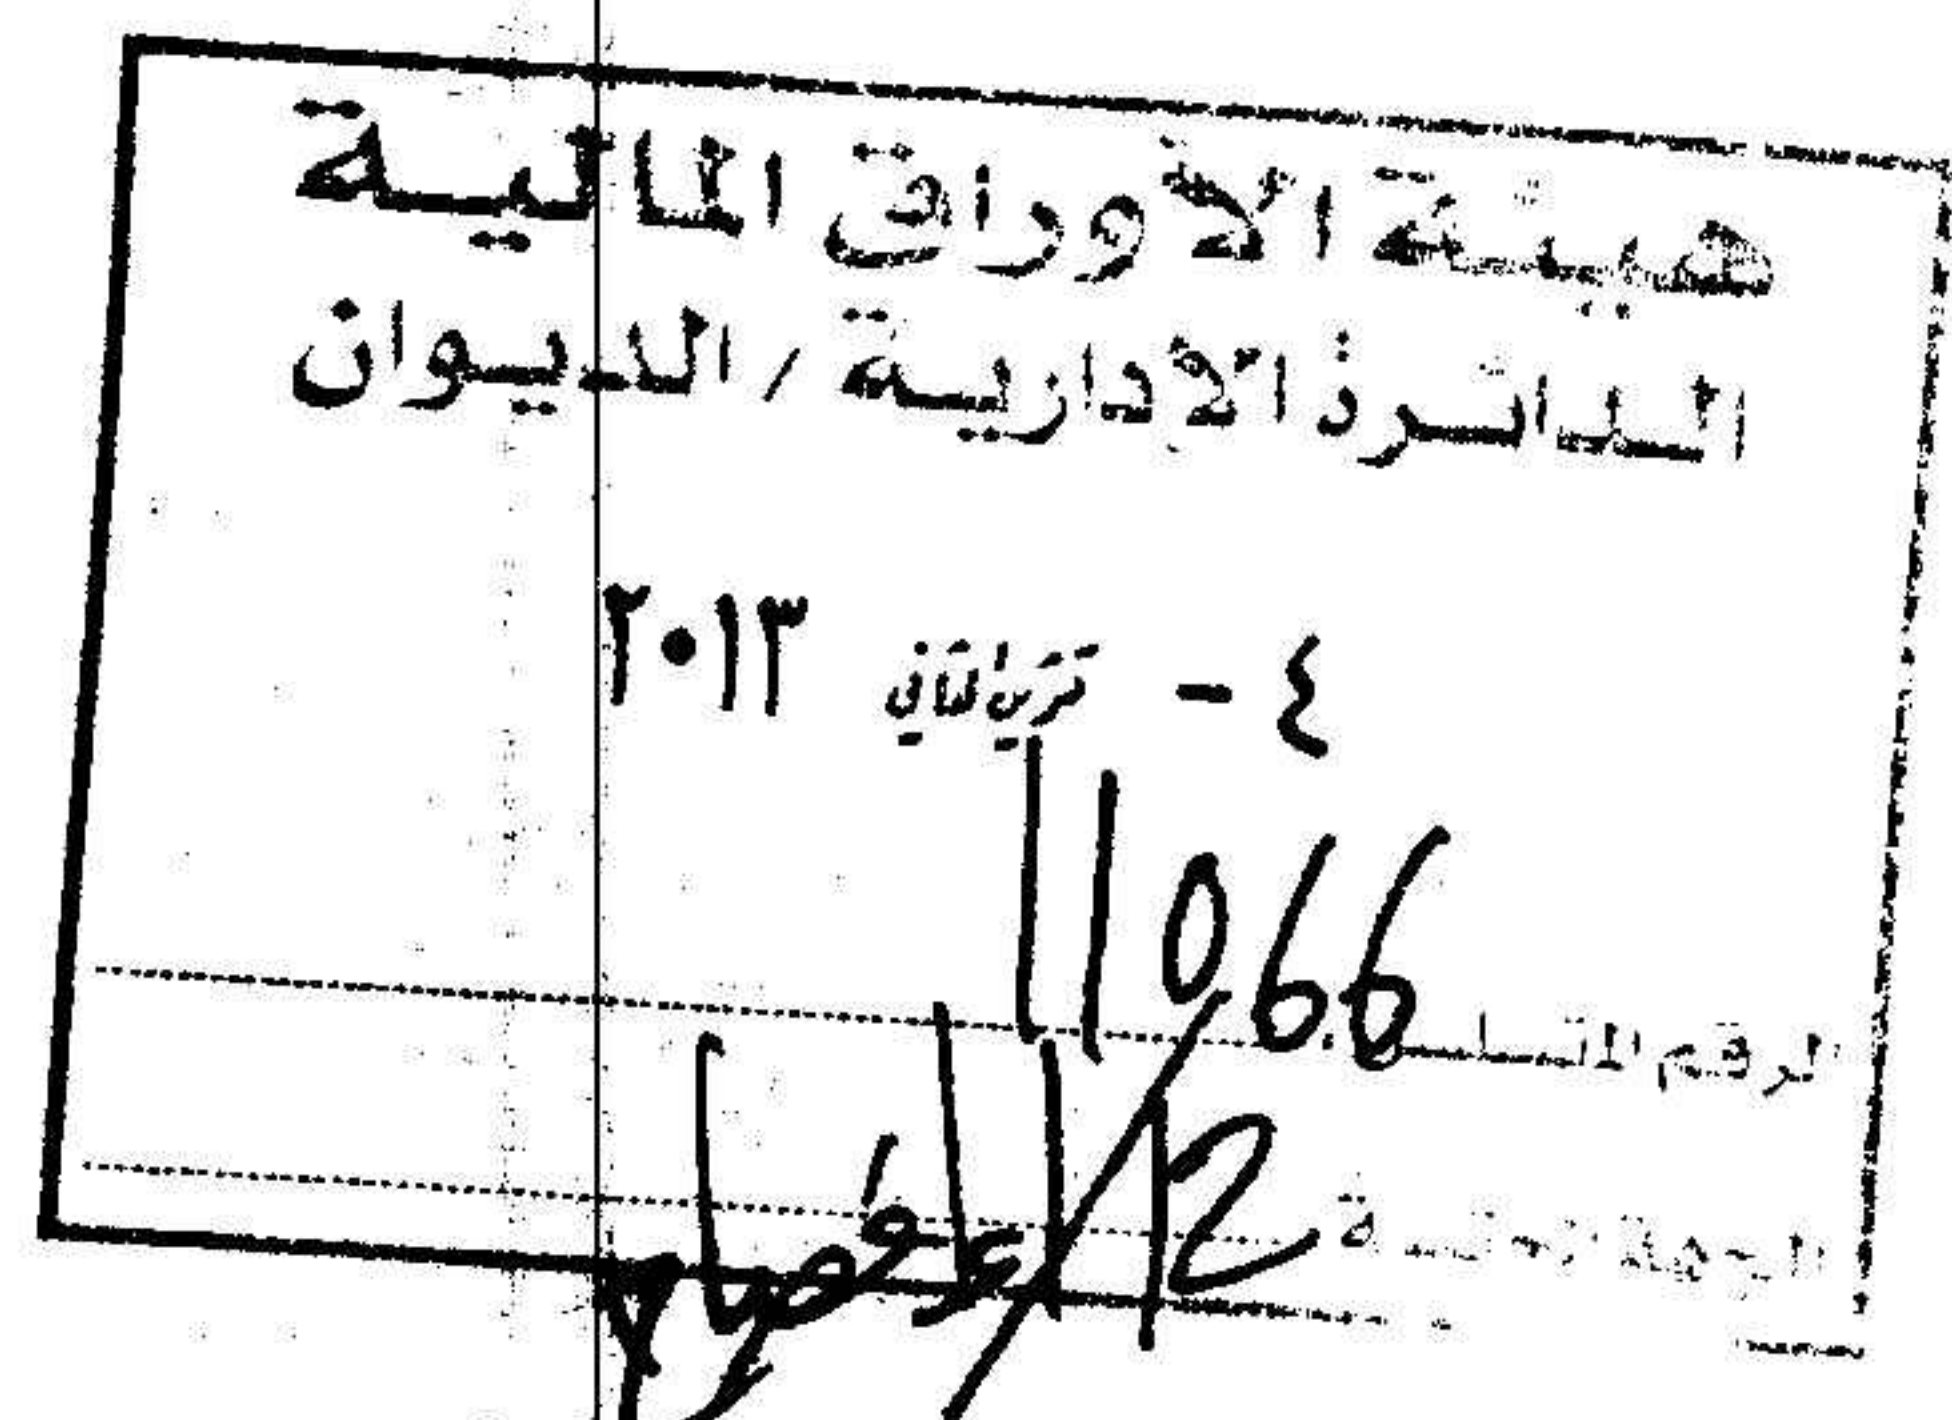 هيئة الأوراق المالية
الدائرة الادارية / الديوان
٤ - تشرين الثاني ٢٠١٣
الرقم المتسلسل 11066
الجهة المختصة 12/11